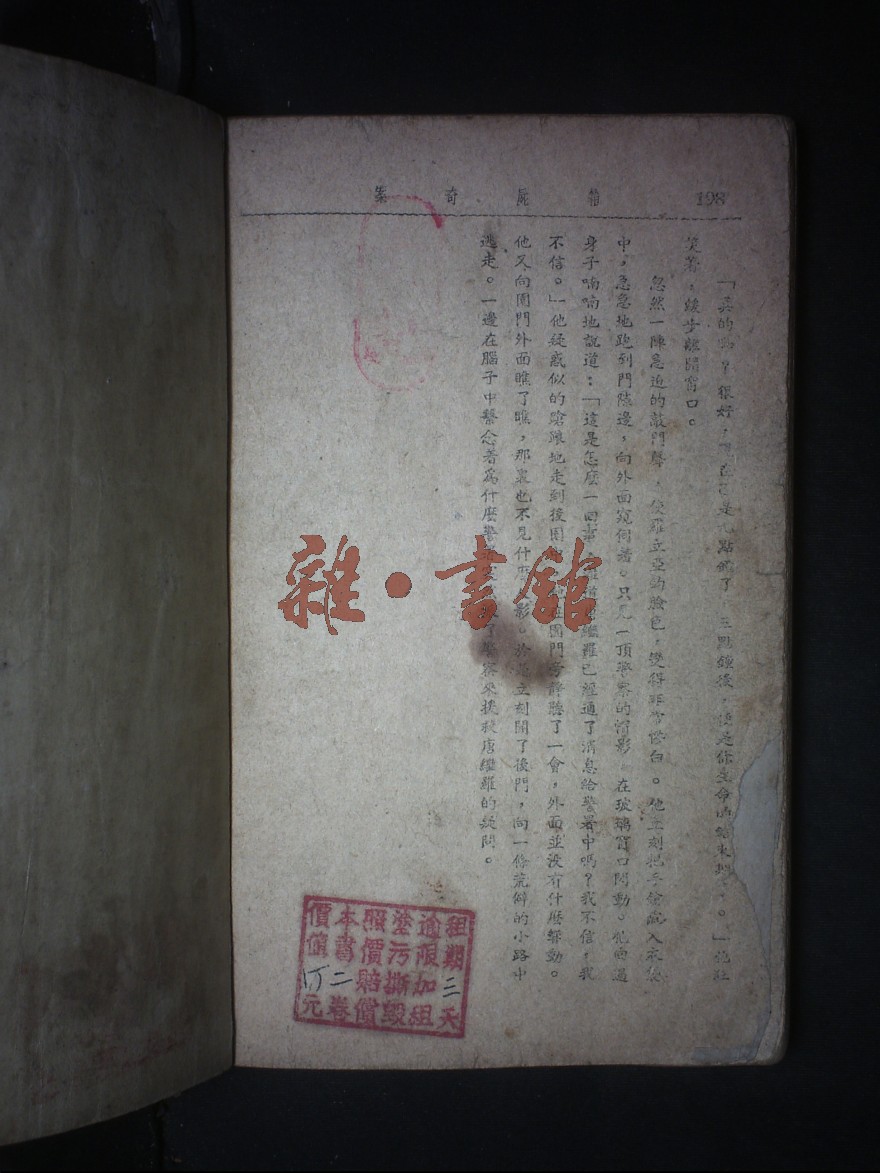 198
箱屍奇案
「真的嗎？很好，現在已是九點鐘了，三點鐘後，便是你生命的結束期了。」他狂
笑著，緩步離開窗口。
忽然一陣急迫的敲門聲，使羅立亞的臉色，變得非常慘白。他立刻把手槍藏入衣袋
中，急急地跑到門隙邊，向外面窺伺着。只見一頂警察的帽影，在玻璃窗口閃動。他面過
身子喃喃地說道：「這是怎麼一回事，唐繼羅已經通了消息給警署中嗎？我不信，我
不信。」他疑惑似的蹌踉地走到後園，在園門旁靜聽了一會，外面並沒有什麼聲動。
他又向園門外面瞧了瞧，那裏也不見什麼影。於是立刻開了後門，向一條荒僻的小路中
逃走。一邊在腦子中繫念着爲什麼警察來挨救唐繼羅的疑問。
雜·書館
租期三天
逾限加租
塗污撕毀
照價賠償
本書二卷
價值元